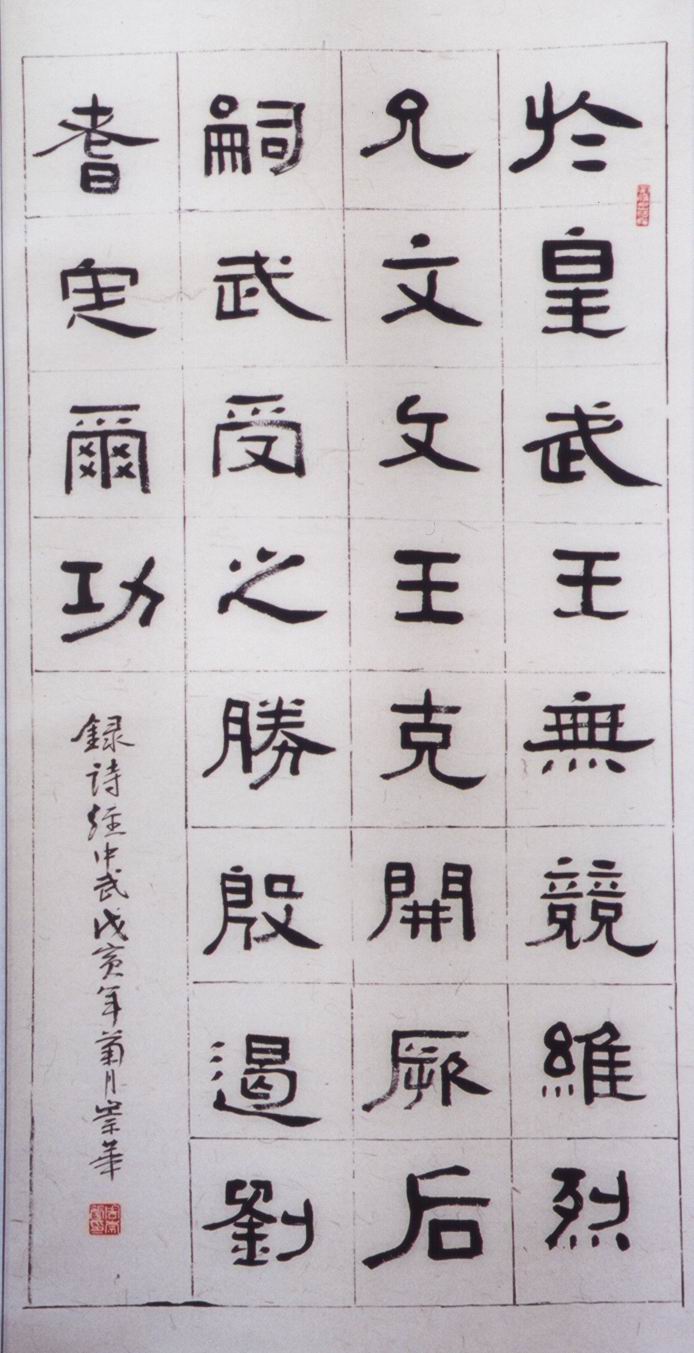 於皇武王無競維烈
允文文王克開厥后
嗣武受之勝殷遏劉
耆定爾功
録詩經中武戊寅年菊月崇華